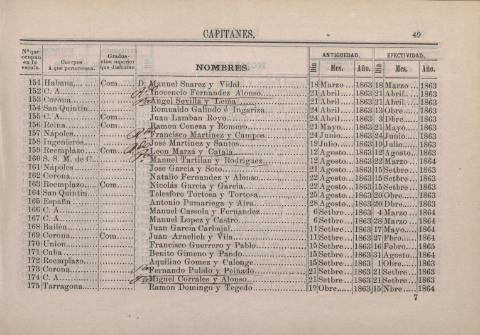 CAPITANES. 49
Nº que ocupan en la escala. Cuerpos A que pertenecen. Graduacion superior que disfrutan NOMBRES. ANTIGUEDAD. EFECTIVIDAD.
Dia Mes. Año. Dia Mes. Año.
151 Habana. Com. D. Manuel Suarez y Vidal. 18 Marzo 1863 18 Marzo 1863
152 C. A. Inocencio Fernandez Alonso. 21 Abril. 1863 21 Abril. 1863
153 Corona. Angel Sevilla y Leiña 21 Abril. 1863 21 Abril. 1863
154 San Quintin. Romualdo Galludo é Ingariza. 21 Abril 1863 21 Abril. 1863
155 C. A. Com. Juan Lambas Royo 24 Abril 1863 3 Dbre 1863
156 Reina. Com. Ramon Conesa y Romero 21 Mayo 1863 21 Mayo 1863
157 Nápoles. Francisco Martinez y Campos. 24 Junio 1863 24 Junio 1863
158 Ingenieros. José Martínez y Santos. 19 Julio. 1863 19 Julio. 1863
159 Reemplazo. Com. Leon Marzá y Catalá. 12 Agosto. 1863 12 Agosto. 1863
160 S. S. M. de C. Manuel Tartilan y Rodriguez. 12 Agosto. 1863 22 Marzo 1864
161 Nápoles José Garcia y Soto. 21 Agosto. 1863 15 Setbre 1863
162 Corona. Natalio Fernandez y Alonso. 21 Agosto. 1863 15 Setbre 1863
163 Reemplazo. Com. Nicolás Garcia y Garcia. 21 Agosto. 1863 15 Setbre 1863
164 San Quintin. Telesforo Tortosa y Tortosa 25 Agosto. 1863 20 Obre. 1863
165 España Antonio Pumariega y Aira. 28 Agosto. 1863 20 Dbre. 1863
166 C. A. Manuel Cassola y Fernandez 6 Setbre 1863 4 Marzo 1864
167 C. A. Manuel Lopez y Castro 6 Setbre 1863 28 Marzo 1864
168 Bailén Juan Garcia Carbajal. 11 Setbre 1863 17 Mayo 1864
169 Corona. Com. Juan Arnelich y Vila 11 Setbre 1863 27 Fbro. 1864
170 Union. Francisco Guerrero y Pablo 15 Setbre 1863 16 Febro. 1865
171 Cuba. Benito Gimeno y Pando. 15 Setbre 1863 31 Agosto 1864
172 Reemplazo. Aquilino Gomez y Calonge. 15 Setbre 1863 1 Obre. 1863
173 Corona Fernando Pulido y Peinado. 21 Setbre 1863 21 Setbre 1863
174 C. A. Miguel Corrales y Alonso 21 Setbre 1863 21 Setbre 1863
175 Tarragona. Ramon Domingo y Tegedo 1º Obre. 1863 15 Nbre 1864
7